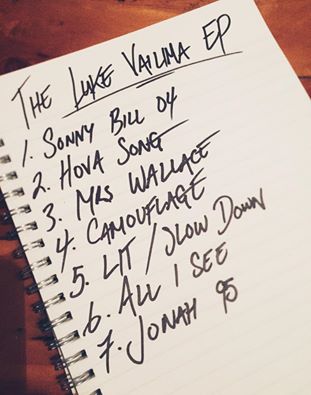 THE LUKE VAILIMA EP
1. SONNY BILL 04
2. HOVA SONG
3. MRS WALLACE
4. CAMOUFLAGE
5. LIT / SLOW DOWN
6. ALL I SEE
7. JONAH 95